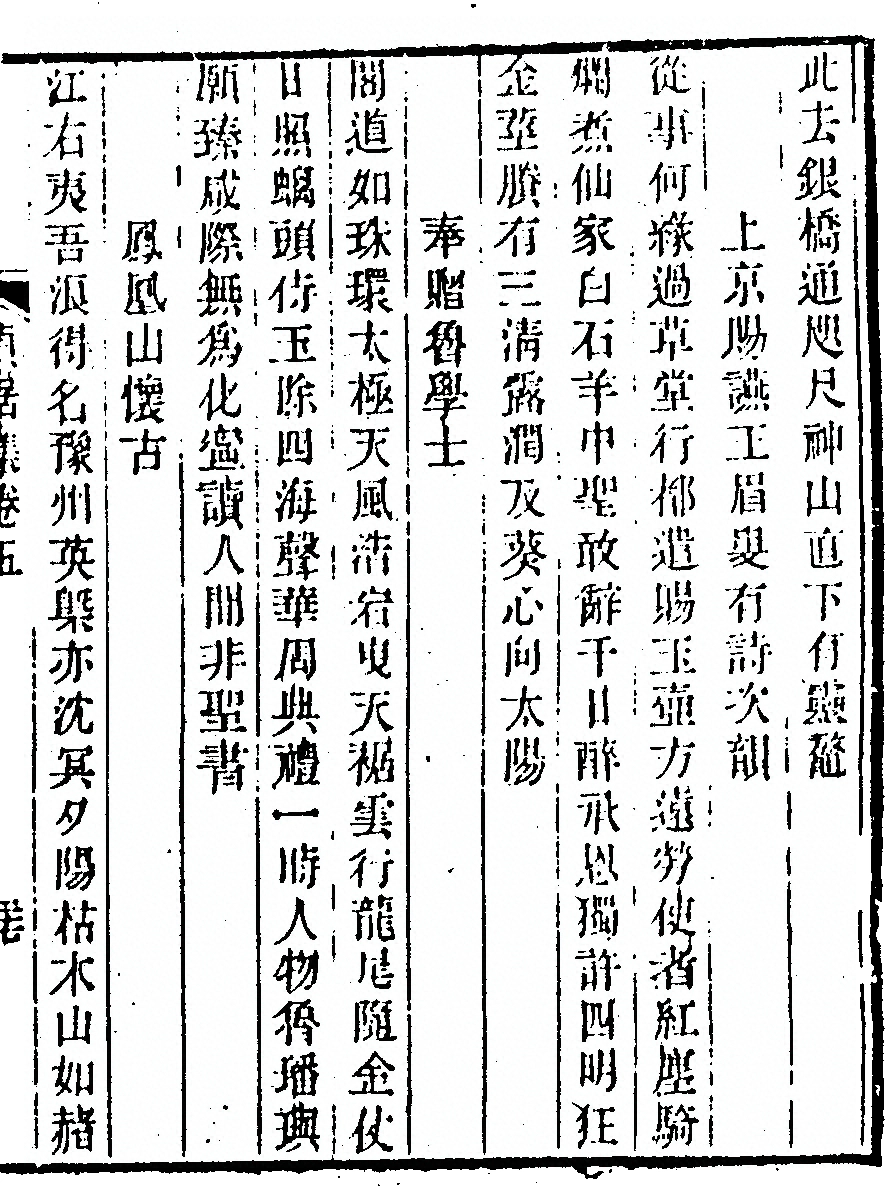 此去銀橋通咫尺神山直下有靈鼇
上京賜讌王眉叟有詩次韻
從事何緣過草堂行都遣賜玉壺方遠勞使者紅塵騎
爛煮仙家白石羊中聖敢辭千日醉承恩獨許四明狂
金莖賸有三清露澗及葵心向太陽
奉贈魯學士
閣道如珠環太極天風浩宕曳天裾雲行龍尾隨金仗
日照螭頭侍玉除四海聲華周典禮一時人物魯璠璵
願臻咸際無為化盡讀人間非聖書
鳳凰山懷古
江右夷吾浪得名豫州英槩亦沈冥夕陽枯木山如赭
貞居集卷五